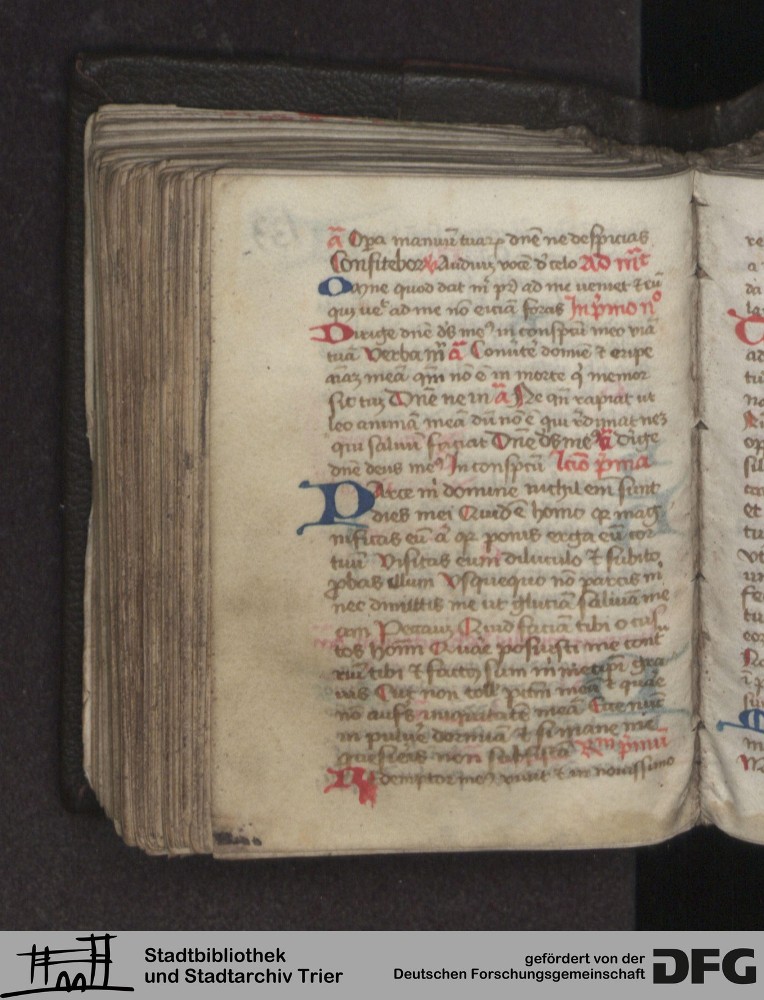 a Opa manuu tuaꝝ dne ne despicias
Confitebor Audiui voce d celo Ad mgt
Omne quod dat m pr ad me ueniet et eu
qui ueit ad me no eiciā foras In pmo no
Dirige dne ds me in conspcu meo viā
tuā Verba m a Conute domie et eripe
aiaz meā qm no e in morte q memor
sit tui Dne ne in a Ne qn rapiat ut
leo animā meā du no e qui redimat nez
qui saluu faciat Dne ds me a dirige
dne deus me In conspcu lcio pma
Parce m domine nichil em sunt
dies mei Quid e homo qr mag
nificas eu a qr ponis erga eu cor
tuu Visitas eum diluculo et subito
probas illum Vsquequo no parcis m
nec dimittis me ut glutiā saliuam me
am Peccaui Quid faciā tibi o cus
tos homi Quare posuisti me cont
riu tibi et factus sum m metipi gra
uis Cur non toll pctm meu et quare
no aufs iniquitate meā Ecce nuc
in puluere dormia et si mane me
quesieris non subsista Rm pmu
Redemptor me viuit et in nouissimo
Stadtbibliothek
und Stadtarchiv Trier
gefördert von der
Deutschen Forschungsgemeinschaft
DFG